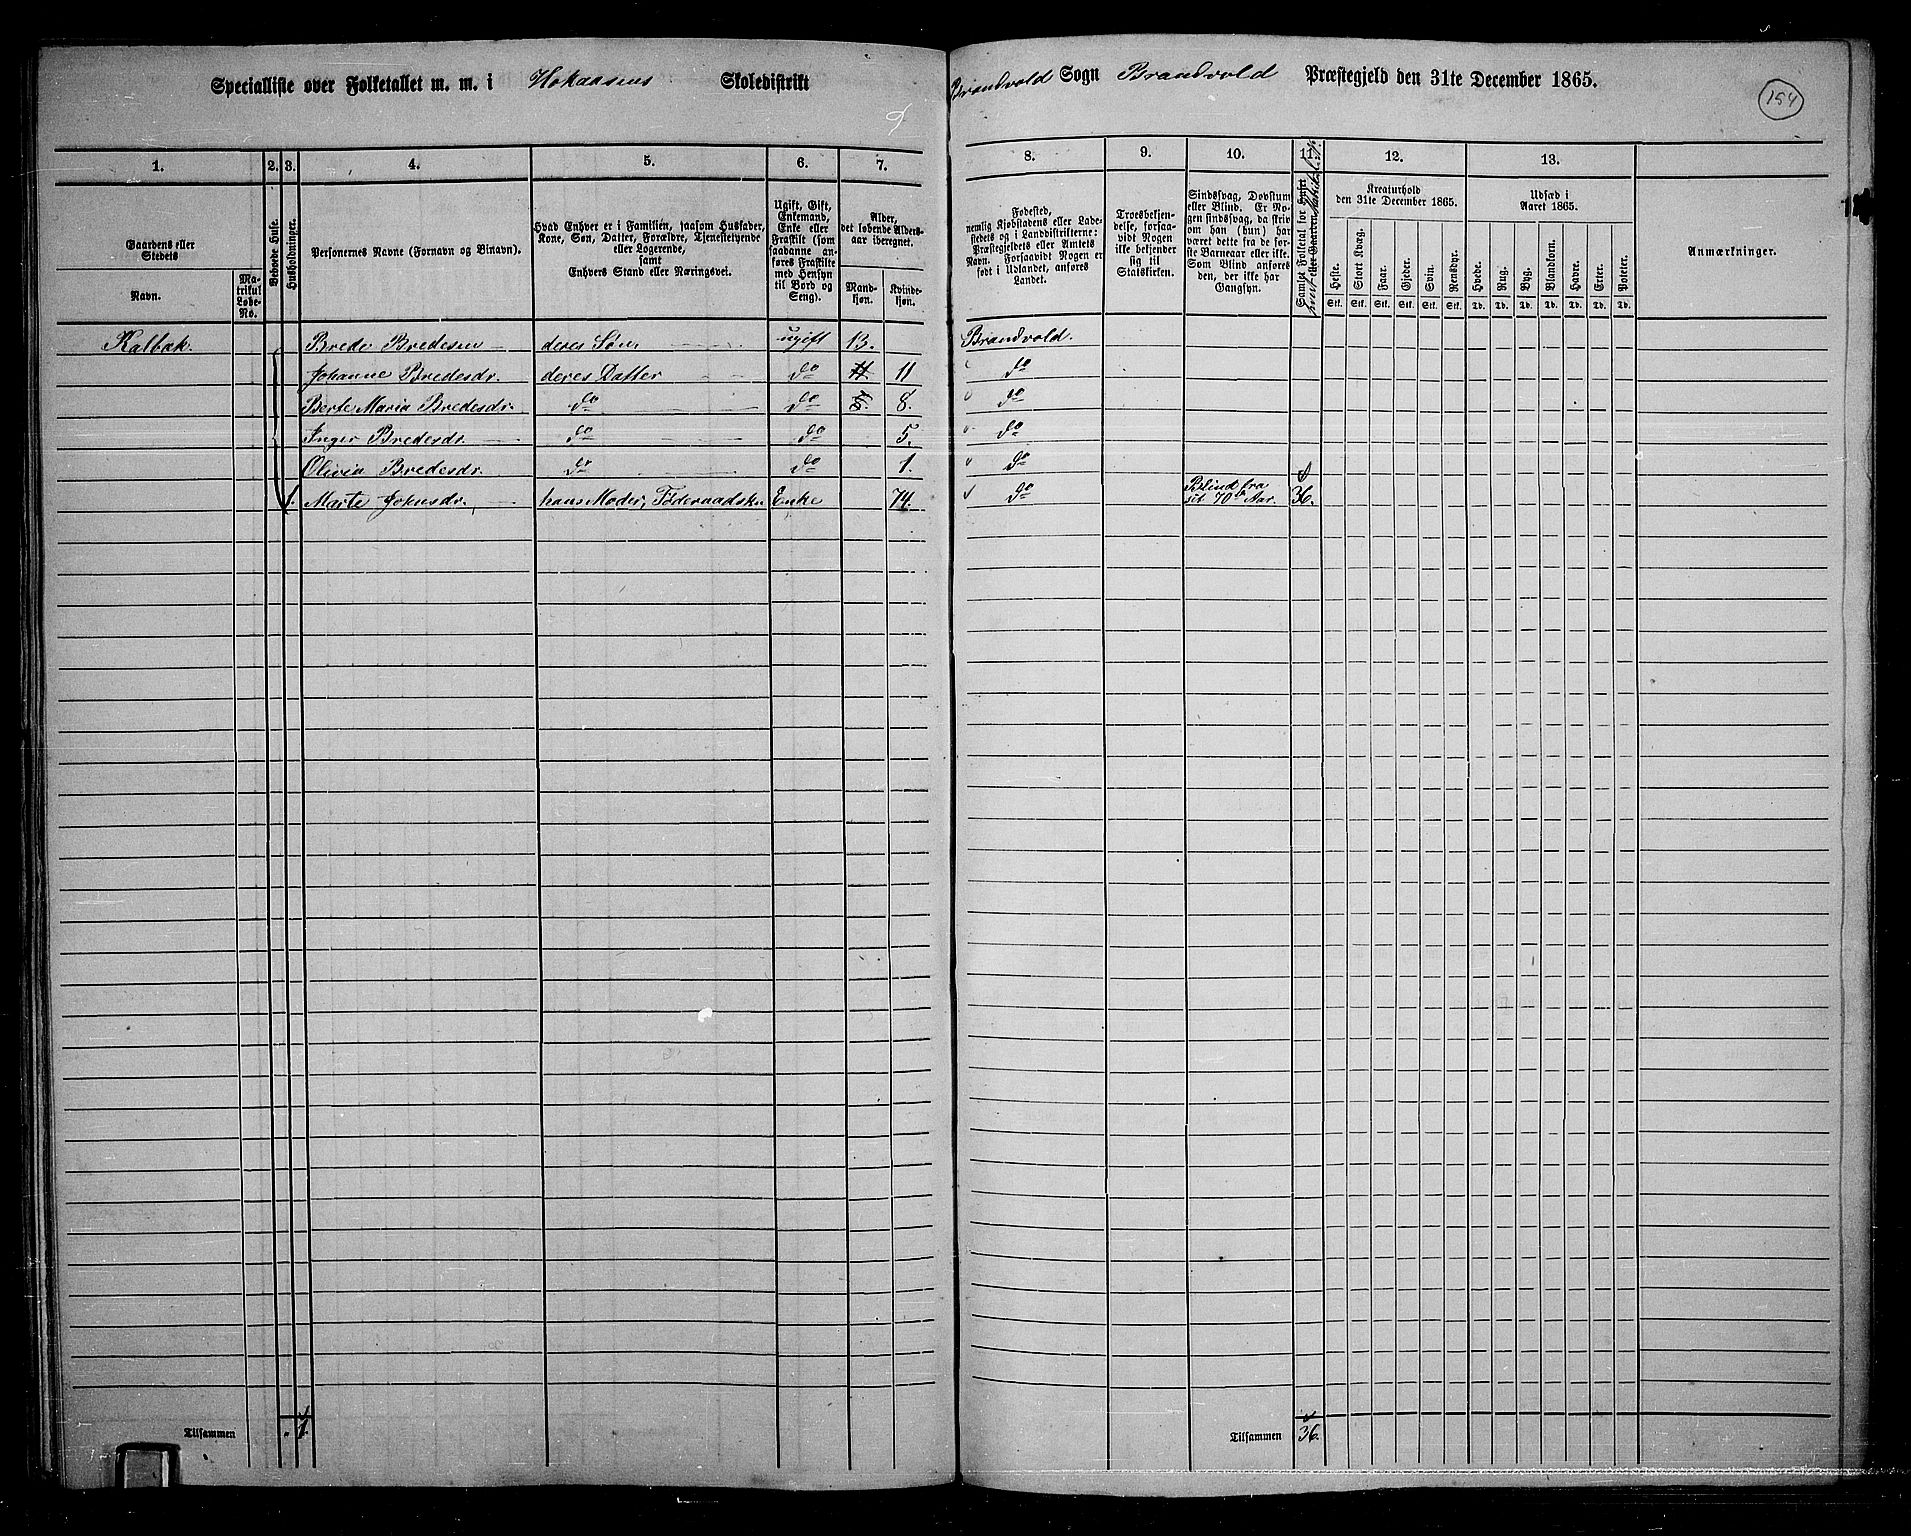 Specialliste over Folketallet m. m. i Hokaasens Skoledistrikt Brandvold Sogn Brandvold Præstegjeld den 31te December 1865.
154
9
1. 2. 3. 4. 5. 6. 7. 8. 9. 10. 11. 12. 13.
Gaardens eller Stedets
Navn.
Matrikul Løbe-No.
Beboede Huse.
Husholdninger.
Personernes Navne (Fornavn og Binavn).
Hvad Enhver er i Familien, saasom Husfader, Kone, Søn, Datter, Forældre, Tjenestetyende eller Logerende,
samt
Enhvers Stand eller Næringsvei.
Ugift, Gift, Enkemand, Enke eller Fraskilt (som saadanne anføres Fraskilte med Hensyn til Bord og Seng).
Alder, det løbende Aldersaar iberegnet.
Mandkjøn. Kvindekjøn.
Fødested,
nemlig Kjøbstadens eller Ladestedets og i Landdistrikterne: Præstegjeldets eller Amtets Navn. Forsaavidt Nogen er født i Udlandet, anføres Landet.
Troesbekjendelse, forsaavidt Nogen ikke bekjender sig til Statskirken.
Sindssvag, Døvstum eller Blind. Er Nogen sindssvag, da skrives om han (hun) har været dette fra de første Barneaar eller ikke. Som Blind anføres den, der ikke har Gangsyn.
Kreaturhold
den 31te December 1865.
Heste. Stort Kvæg. Faar. Gjeder. Svin. Rensdyr.
Stk. Stk. Stk. Stk. Stk. Stk.
Udsæd i
Aaret 1865.
Hvede. Rug. Byg. Blandkorn. Havre. Erter. Poteter.
Td. Td. Td. Td. Td. Td. Td.
Anmærkninger.
Kalbæk. Brede Bredesen deres Søn ugift 13. Brandvold.
Johanne Bredesdr. deres Datter do 11 11 do
Berte Maria Bredesdr. do do 5. 8. do
Inger Bredesdr. do do 5. do
Olivia Bredesdr. do do 1. do
1. Marte Johnsdr. hans Moder, Føderaadsk. Enke 74. do Blind fra sit 70de Aar. 36.
Tilsammen 1. Tilsammen 36.